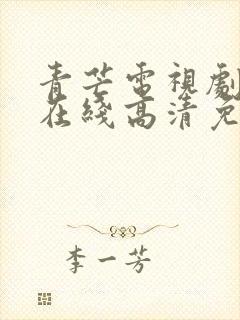 青芒電視劇
在綫高清免
李一芳